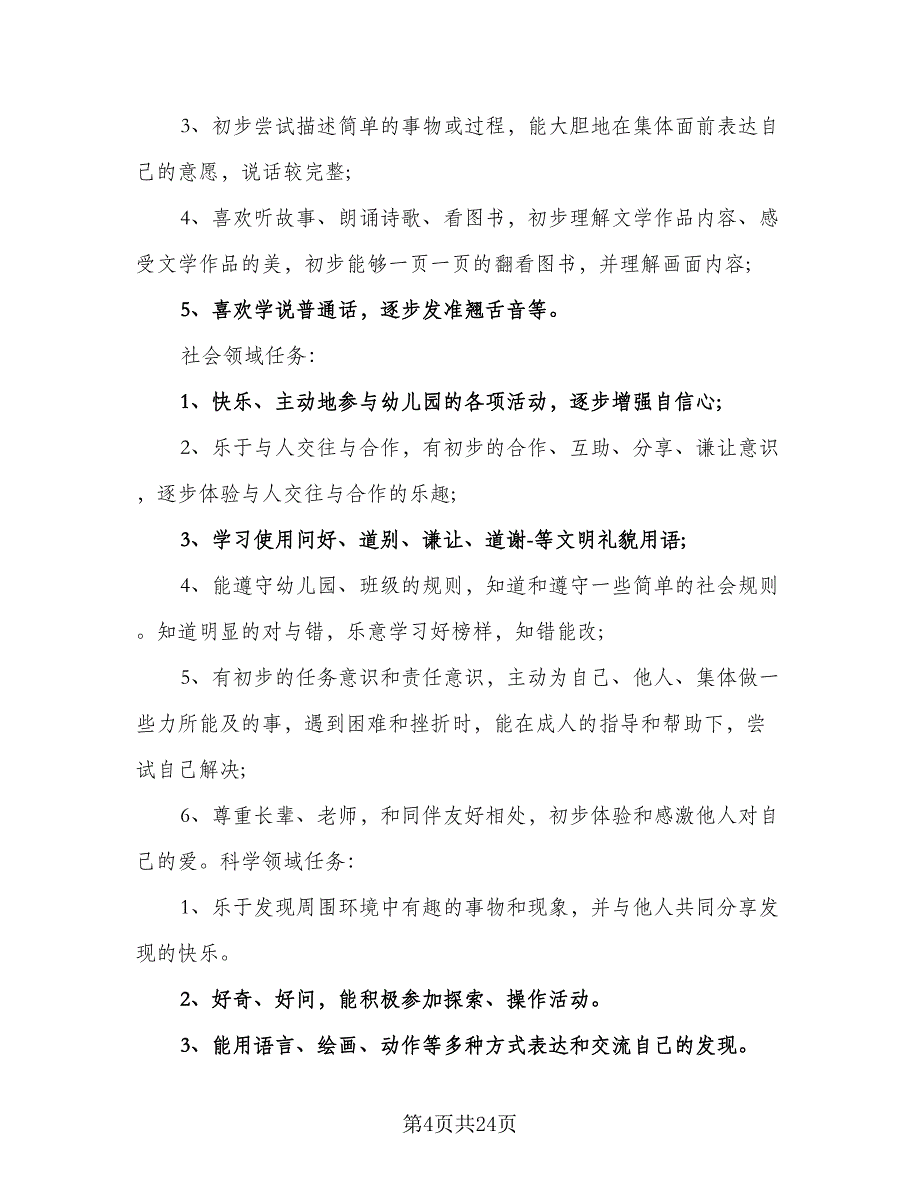 3、初步尝试描述简单的事物或过程，能大胆地在集体面前表达自
己的意愿，说话较完整;
4、喜欢听故事、朗诵诗歌、看图书，初步理解文学作品内容、感
受文学作品的美，初步能够一页一页的翻看图书，并理解画面内容;
5、喜欢学说普通话，逐步发准翘舌音等。
社会领域任务：
1、快乐、主动地参与幼儿园的各项活动，逐步增强自信心;
2、乐于与人交往与合作，有初步的合作、互助、分享、谦让意识
，逐步体验与人交往与合作的乐趣;
3、学习使用问好、道别、谦让、道谢-等文明礼貌用语;
4、能遵守幼儿园、班级的规则，知道和遵守一些简单的社会规则
。知道明显的对与错，乐意学习好榜样，知错能改;
5、有初步的任务意识和责任意识，主动为自己、他人、集体做一
些力所能及的事，遇到困难和挫折时，能在成人的指导和帮助下，尝
试自己解决;
6、尊重长辈、老师，和同伴友好相处，初步体验和感激他人对自
己的爱。科学领域任务：
1、乐于发现周围环境中有趣的事物和现象，并与他人共同分享发
现的快乐。
2、好奇、好问，能积极参加探索、操作活动。
3、能用语言、绘画、动作等多种方式表达和交流自己的发现。
第4页共24页